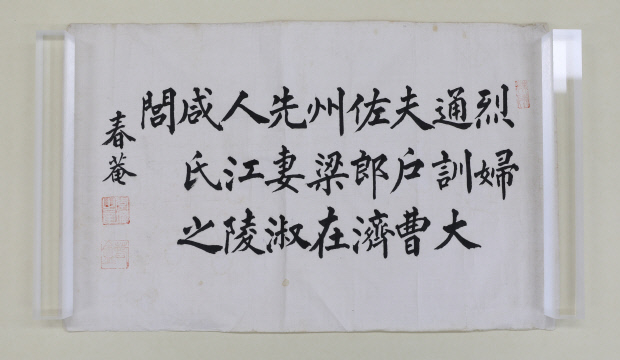 烈婦
通訓大
夫戶曹
佐郎濟
州梁在
先妻淑
人江陵
咸氏之
閭
春菴